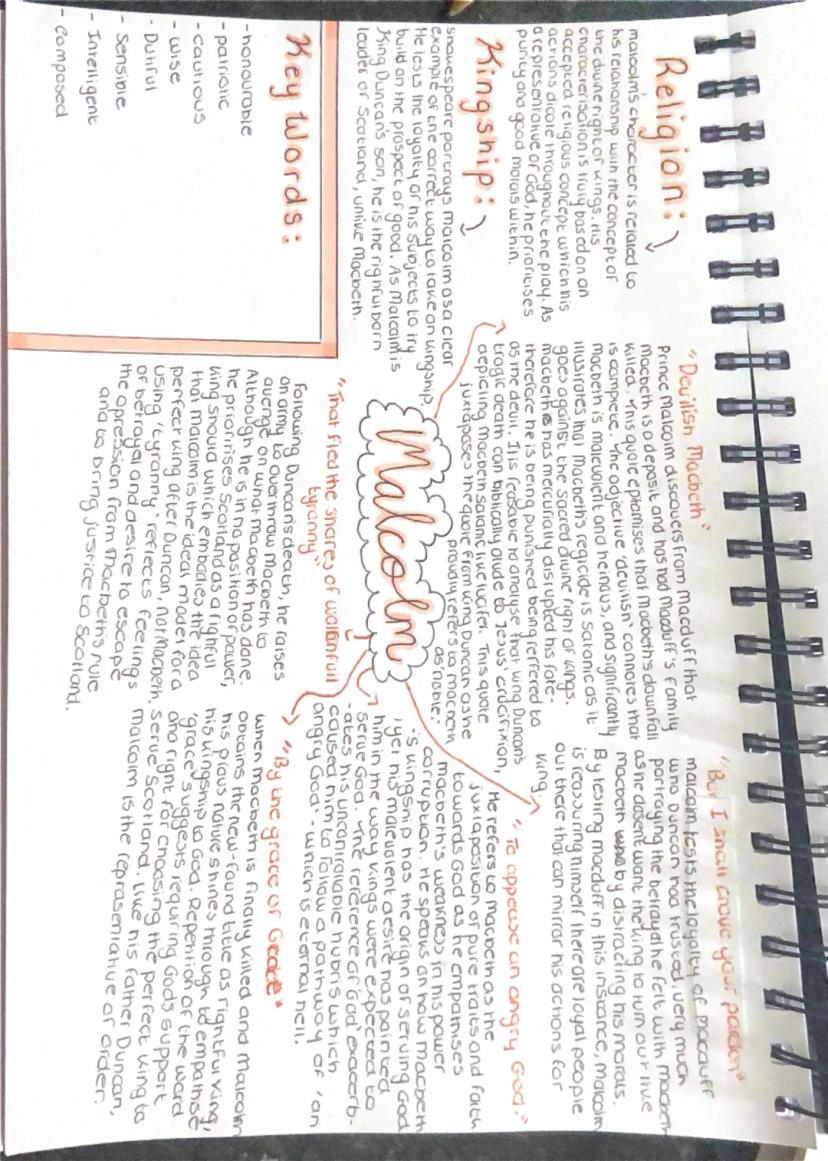 Religion:
malcolm's character is related to
his relationship with the concept of
the divine right of kings. His
characterisation is truly based on an
accepted religious concept which his
actions dicate throughout the play. As
a representative of God, he prioritises
purity and good morals within.
Kingship:
Shakespeare portrays malcolm as a clear
example of the correct way to take on kingship.
He tests the loyalty of his subjects to try
build on the prospect of good. As Malcolm is
King Duncan's son, he is the righful born
leader of Scotland, unlike Macbeth.
Key Words:
- honourable
- patriotic
- cautious
- wise
- Dutiful
- Sensible
- Intelligent
- composed
"Devilish Macbeth"
Prince Malcolm discovers from macduff that
Macbeth is a deposit and has had Macduff's family
killed. This quote ephamises that Macbeth's downfall
is complete. The adjective 'devilish' connotes that
Macbeth is malevolent and heinous, and significantly
illustrates that Macbeth's regicide is satanic as it
goes against the sacred divine right of kings.
macbeth has mercurially disrupted his fate-
therefore he is being punished being reffered to
as the devil. It is feasable to analyse that King Duncan's
tragic death can biblically alude to Jesus' crucifixion,
depicting Macbeth satanic like lucifer. This quote
juxtaposes the quote from King Duncan as he
proudly refers to macbeth
as 'noble'.
Malcolm
"That fled the snares of watchful
tyranny"
Following Duncan's death, he raises
an army to overthrow Macbeth to
avenge on what Macbeth has done.
Although he is in no position of power,
he priorities Scotland as a rightful
king should which embodies the idea
that malcolm is the ideal model for a
perfect king after Duncan, not Macbeth.
using 'tyranny' reflects feelings
of betrayal and desire to escape
the opression from Macbeth's rule
and to bring justice to Scotland.
"But I shall crave your pardon"
malcolm tests the loyalty of macduff
who Duncan had trusted very much
portraying the betrayal he felt with macbeth
as he dosent want the king to ruin our live
macbeth by distrading his morals.
By testing macduff in this instance, Malcolm
is reassuring himself there are loyal people
out there that can mirror his actions for
king.
"To appease an angry God."
He refers to macbeth as the
juxtaposition of pure traits and faith
towards God as he empahises
macbeth's weakness in his power
corruption. He speaks on how Macbeth
-'s kingship has the origin of serving God
, yet his malevolent desire has painted
him in the way kings were expected to
serve God. The reference of 'God' exacerb-
-ates his uncontrollable hubris which
caused him to follow a pathway of 'an
angry God' - which is eternal hell.
"By the grace of Grace"
when Macbeth is finally killed and Malcolm
obtains the new-found title as rightful king,
his pious nature shines through to empathise
his kingship to God. Repetition of the word
'grace' suggests requiring Gods support
and right for choosing the perfect king to
serve Scotland. Like his father Duncan,
malcolm is the reprasentative of order.